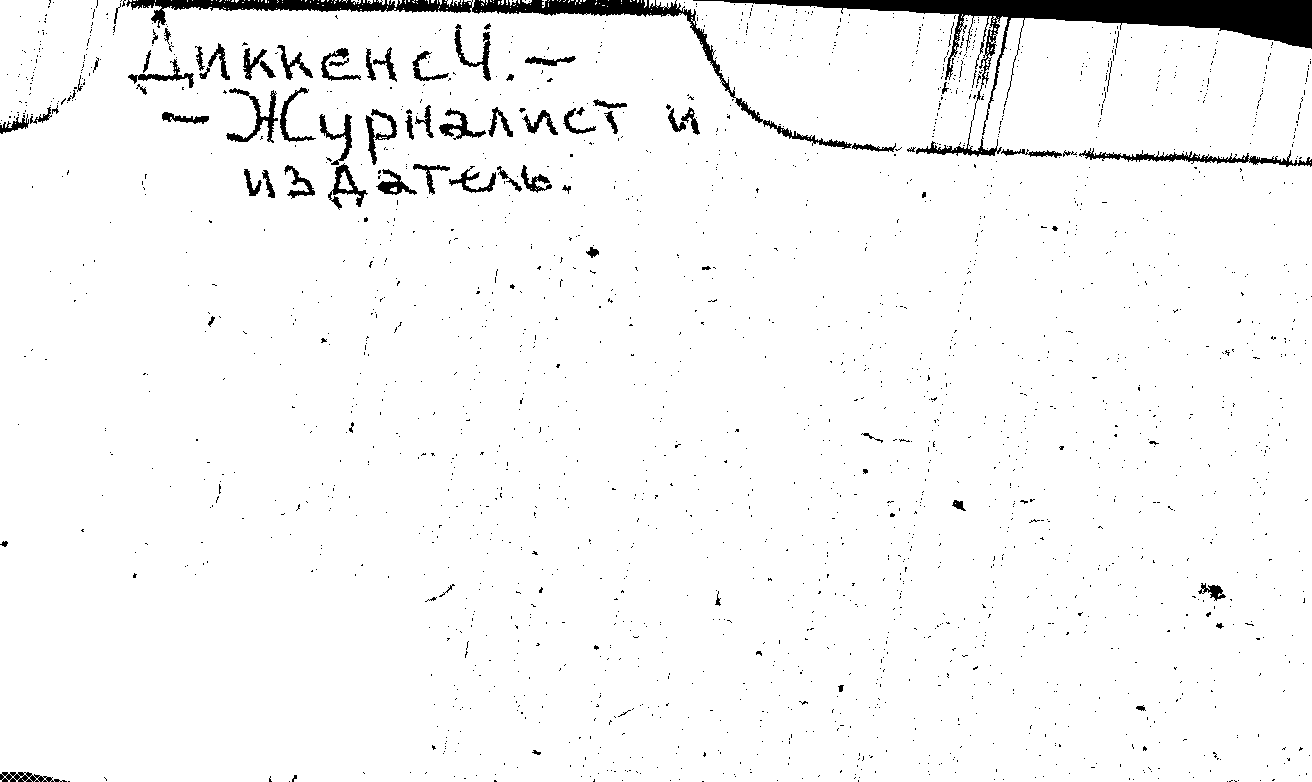 Диккенс Ч. –
– Журналист и
издатель.